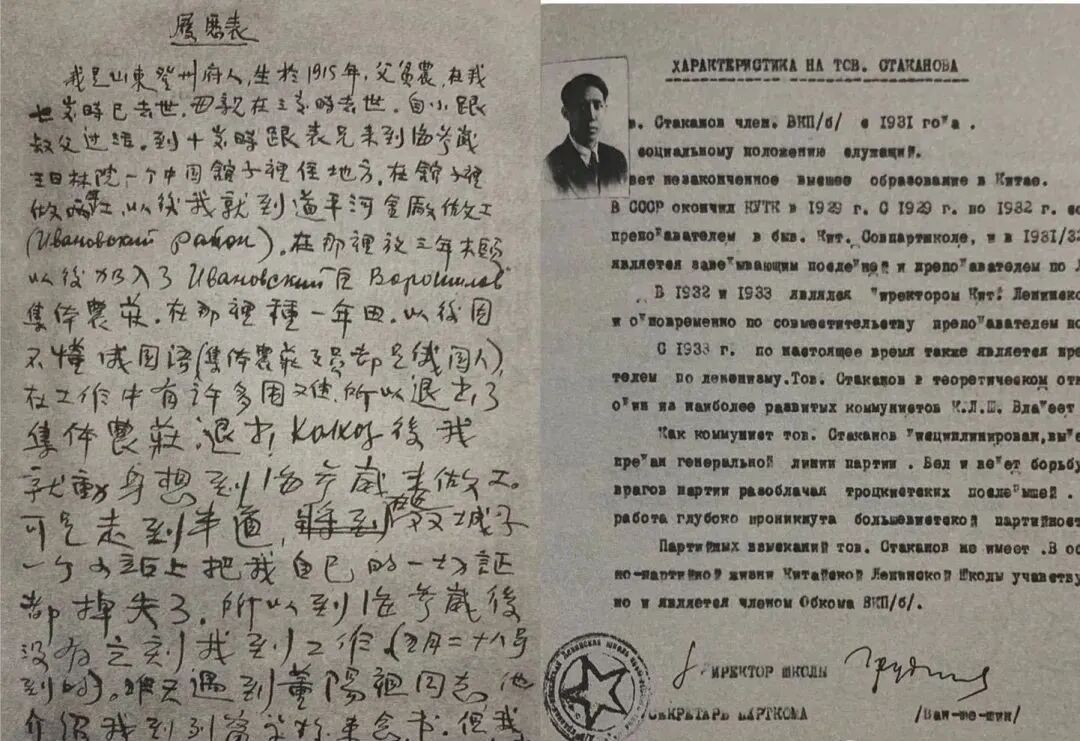 履歷表
我是山東登州府人,生於1915年,父為農,在我
七歲時已去世.母親在三歲時去世.自小跟
叔父过活.到十歲時跟表兄來到海參崴
一个中国館子裡住地方.在館子裡
做,以後我就到道平河金廠做工
(Ивановский район).在那裡放三年木頭
以後加入了Ивановский Ворошилов
集体農莊.在那裡種一年田.以後因
不懂俄国语(集体農莊員都是俄国人),
在工作中有許多困难.所以退出了
集体農莊.退出Колхоз後我
就動身想到海參崴來做工.
可是走到半道,双城子
一个站上把我自己的一切証
都掉失了.所以到海參崴後
没有立刻找到工作(二十八号
到的).昨天遇到董陽祖同志,他
介紹我到列寧学校来念书.但我
ХАРАКТЕРИСТИКА НА ТОВ. СТАКАНОВА
в. Стаканов член. ВКП/б/ с 1931 го"а .
социальному положению служащий.
еет незаконченное высшее образование в Китае.
В СССР окончил КУТК в 1929 г. С 1929 г. по 1932 г. со
препо"авателем в быв. Кит. Совпартшколе, и в 1931/32
является заве"ывающим после"ней и препо"авателем по Л
В 1932 и 1933 являлся "иректором Кит. Ленинско
и о"новременно по совместительству препо"авателем по
С 1933 г. по настоящее время также является пре
телем по ленинизму.Тов. Стаканов в теоретическом от
о"ин из наиболее развитых коммунистов К.Л.Ш. Вла"еет
Как коммунист тов. Стаканов "исциплинирован,вы"е
пре"ан генеральной линии партии . Вел и ве"ет борьбу
врагов партии разоблачал троцкистских после"ышей .
работа глубоко проникнута большевистской партийност
Партийных взысканий тов. Стаканов не имеет .В ос
но-партийной жизни Китайской Ленинской Школы учавству
но и является членом Обкома ВКП/б/.
"ИРЕКТОР ШКОЛЫ
СЕКРЕТАРЬ ПАРТКОМА /Ван-ше-шин/